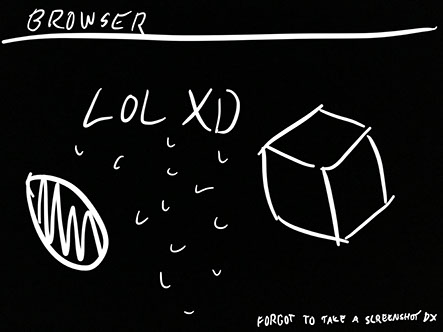 BROWSER
LOL XD
FORGOT TO TAKE A SCREENSHOT DX